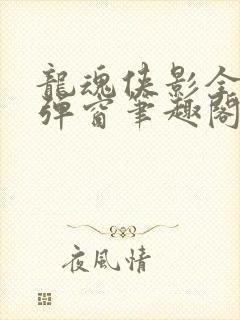 龍魂俠影全
彈窗筆趣閣
夜風情